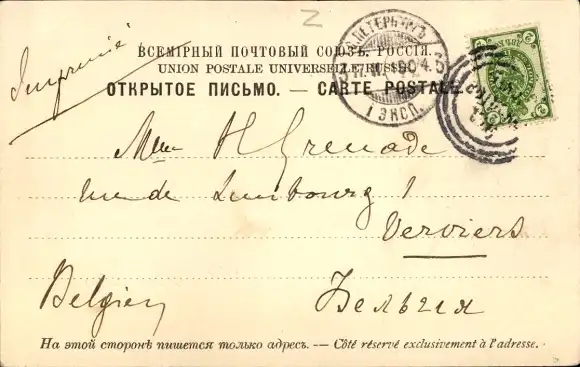 Z
С.ПЕТЕРБУРГЪ
ВСЕМІРНЫЙ ПОЧТОВЫЙ СОЮЗЪ. РОССІЯ.
Imprimé
UNION POSTALE UNIVERSELLE. RUSSIE.
ОТКРЫТОЕ ПИСЬМО. — CARTE POSTALE.
1 ЭКСП.
Mme H Grenade
rue de Limbourg 1
Verviers
Belgien Бельгія
На этой сторонѣ пишется только адресъ. — Côté réservé exclusivement à l'adresse.